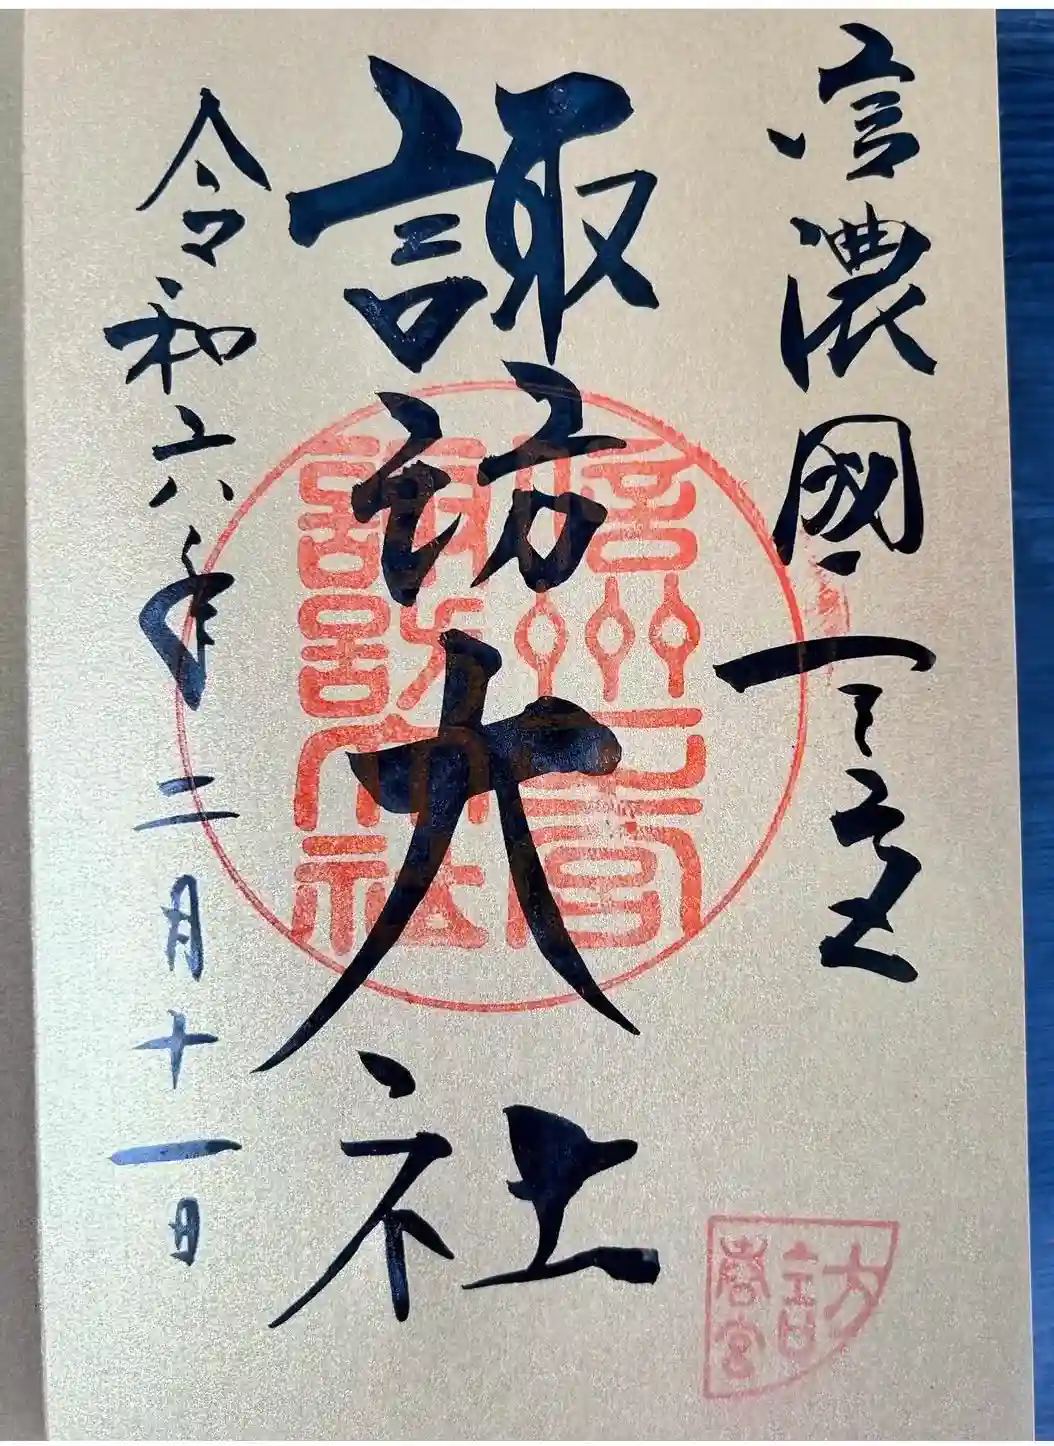 信濃國一之宮
諏訪大社
令和六年二月十一日
信州一之宮
諏訪大社
訪
春宮